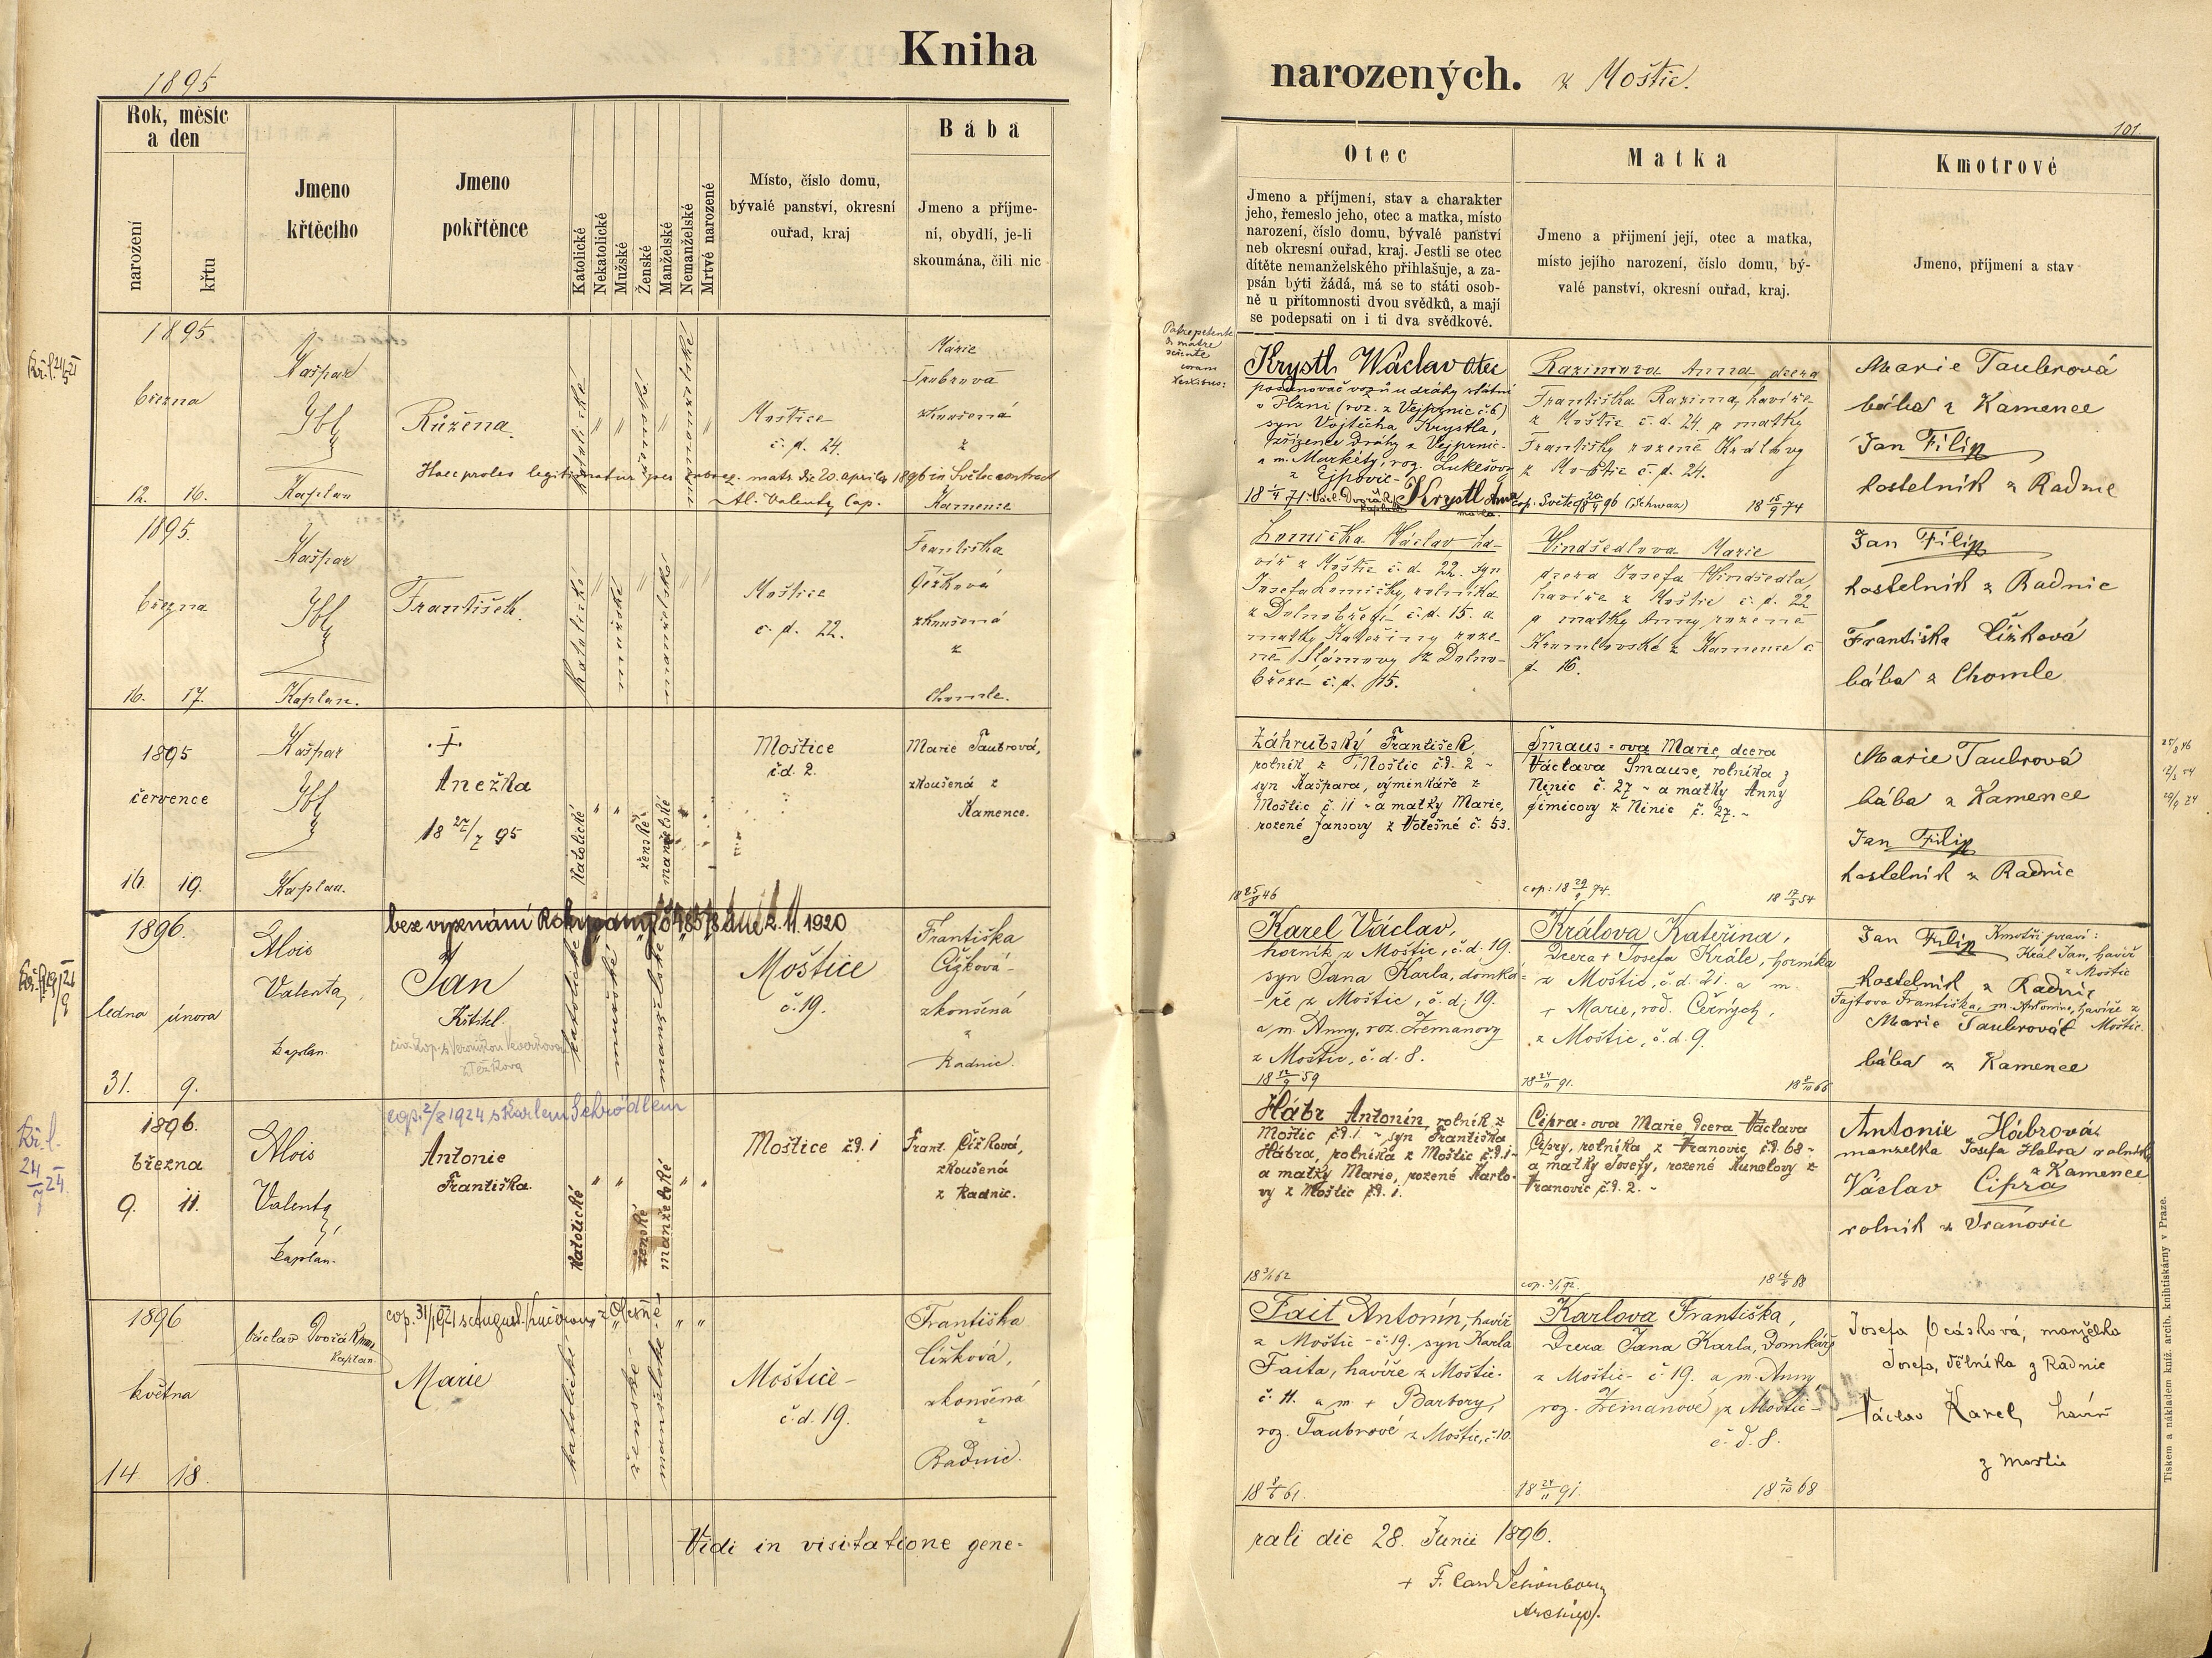 Kniha
1895
Rok, měsíc
a den
narození
křtu
Jmeno
křtěcího
Jmeno
pokřtěnce
Katolické
Nekatolické
Mužské
Ženské
Manželské
Nemanželské
Mrtvé narozené
Místo, číslo domu,
bývalé panství, okresní
ouřad, kraj
Bába
Jmeno a příjme-
ní, obydlí, je-li
skoumána, čili nic
1895
března
12. 16.
Kašpar
Ibl
Kaplan
Růžena.
katolické
ženské
nemanželské
Moštice
č. p. 24.
Marie
Taubrová
zkoušená
z
Kamence
Haec proles legitimatur per subseq. matr. die 20. aprilis 1896 in Světec contract
Al. Valenta Cap.
1895.
března
16. 17.
Kašpar
Ibl
Kaplan.
František.
katolické
mužské
manželské
Moštice
č. p. 22.
Františka
Čížková
zkoušená
z
Chomle.
1895
července
16. 19.
Kašpar
Ibl
Kaplan.
Anežka
18 27/7 95
katolické
ženské
manželské
Moštice
čd. 2.
Marie Taubrová,
zkoušená z
Kamence.
1896.
ledna února
31. 9.
Alois
Valenta,
kaplan.
bez vyznání Rokycany dne 2. 11. 1920
Jan
Křtitel.
katolické
mužské
manželské
Moštice
č. 19.
Františka
Čížková
zkoušená
z
Radnic.
1896.
března
9. 11.
Alois
Valenta,
kaplan.
cop. 2/8 1924 s Karlem Schrödlem
Antonie
Františka.
katolické
ženské
manželské
Moštice čd. 1
Frant. Čížková,
zkoušená
z Radnic.
1896
května
14. 18.
Václav Dvořák
kaplan.
Marie
katolické
ženské
manželské
Moštice-
č. d. 19.
Františka
Čížková,
zkoušená
z
Radnic.
Vidi in visitatione gene-
narozených. z Moštic.
101
Otec
Jmeno a příjmení, stav a charakter
jeho, řemeslo jeho, otec a matka, místo
narození, číslo domu, bývalé panství
neb okresní ouřad, kraj. Jestli se otec
dítěte nemanželského přihlašuje, a za-
psán býti žádá, má se to státi osob-
ně u přítomnosti dvou svědků, a mají
se podepsati on i ti dva svědkové.
Matka
Jmeno a přijmení její, otec a matka,
místo jejího narození, číslo domu, bý-
valé panství, okresní ouřad, kraj.
Kmotrové
Jmeno, příjmení a stav
Patre petente
& matre
coram
testibus:
Krystl Wáclav otec
posunovač vozů u dráhy státní
v Plzni (roz. z Vejprnic č. 6)
syn Vojtěcha Krystla,
zřízence dráhy z Vejprnic
a m. Markéty, roz. Lukešové
z Ejpovic
Krystl
Razimova Anna, dcera
Františka Razima, havíře
z Moštic č. d. 24. a matky
Františky rozené Králový
z Moštic č. p. 24.
cop. Světec 20/4 96 (Schwaz) 18 15/9 74
Marie Taubrová
bába z Kamence
Jan Filip
kostelník z Radnic
Lomička Václav ha-
víř z Moštic č. d. 22. syn
Josefa Lomičky, rolníka
z Dolnobřezí č. d. 15. a
matky Kateřiny roze-
né Slámovy z Dolno-
březe č. p. 15.
Vindšedlova Marie
dcera Josefa Vindšedla,
havíře z Moštic č. p. 22
a matky Anny, rozené
Krumlovské z Kamence č
p. 16.
Jan Filip
kostelník z Radnic
Františka Čížková
bába z Chomle
Záhrubský František,
rolník z Moštic čd. 2 -
syn Kašpara, výminkáře z
Moštic č. 11 - a matky Marie,
rozené Jansovy z Volešné č. 53.
18 25/8 46
Šmaus=ova Marie, dcera
Václava Šmause, rolníka z
Ninic č. 27 - a matky Anny
Šimicovy z Ninic č. 27. -
cop: 18 29/9 74. 18 17/3 54
Marie Taubrová
bába z Kamence
Jan Filip
kostelník z Radnic
25/8 46
12/3 54
29/9 74
Karel Václav,
horník z Moštic, č. d. 19.
syn Jana Karla, domká-
ře z Moštic, č. d. 19.
a m. Anny, roz. Zemanovy
z Moštic, č. d. 8.
18 12/9 59
Králova Kateřina,
Dcera + Josefa Krále, horníka
z Moštic, č. d. 21. a m.
+ Marie, rod. Černých,
z Moštic, č. d. 9.
18 24/11 91. 18 8/10 66
Jan Filip
kostelník z Radnic
Marie Taubrová
bába z Kamence
Kmotři praví:
Král Jan, havíř
z Moštic
Fajtova Františka, m. Antonína, havíře z
Moštic.
Hábr Antonín, rolník z
Moštic čd. 1. - syn Františka
Hábra, rolníka z Moštic čd. 1 -
a matky Marie, rozené Karlo-
vy z Moštic čd. 1.
18 3/1 62
Cipra=ova Marie, dcera Václava
Cipry, rolníka z Vranovic čd. 68 -
a matky Josefy, rozené Kunešovy z
Vranovic čd. 2. -
cop. 3/1 92. 18 16/8 68
Antonie Hábrová
manželka Josefa Hábra rolníka
z Kamence
Václav Cipra
rolník z Vranovic
Fait Antonín, havíř
z Moštic - č 19. syn Karla
Faita, havíře z Moštic-
č. 11. a m. + Barbory,
roz. Taubrové z Moštic, č. 10.
18 8/6 61.
Karlova Františka,
Dcera Jana Karla, Domkáře
z Moštic- č 19. a m. Anny
roz. Zemanové, z Moštic-
č. d. 8.
18 24/11 91. 18 2/10 68
Josefa Ocásková, manželka
Josefa, dělníka z Radnic
Václav Karel, havíř
z Moštic
rali die 28. Junii 1896.
+ F. Card Schönborn
Archiep.
Tiskem a nákladem kníž. arcib. knihtiskárny v Praze.